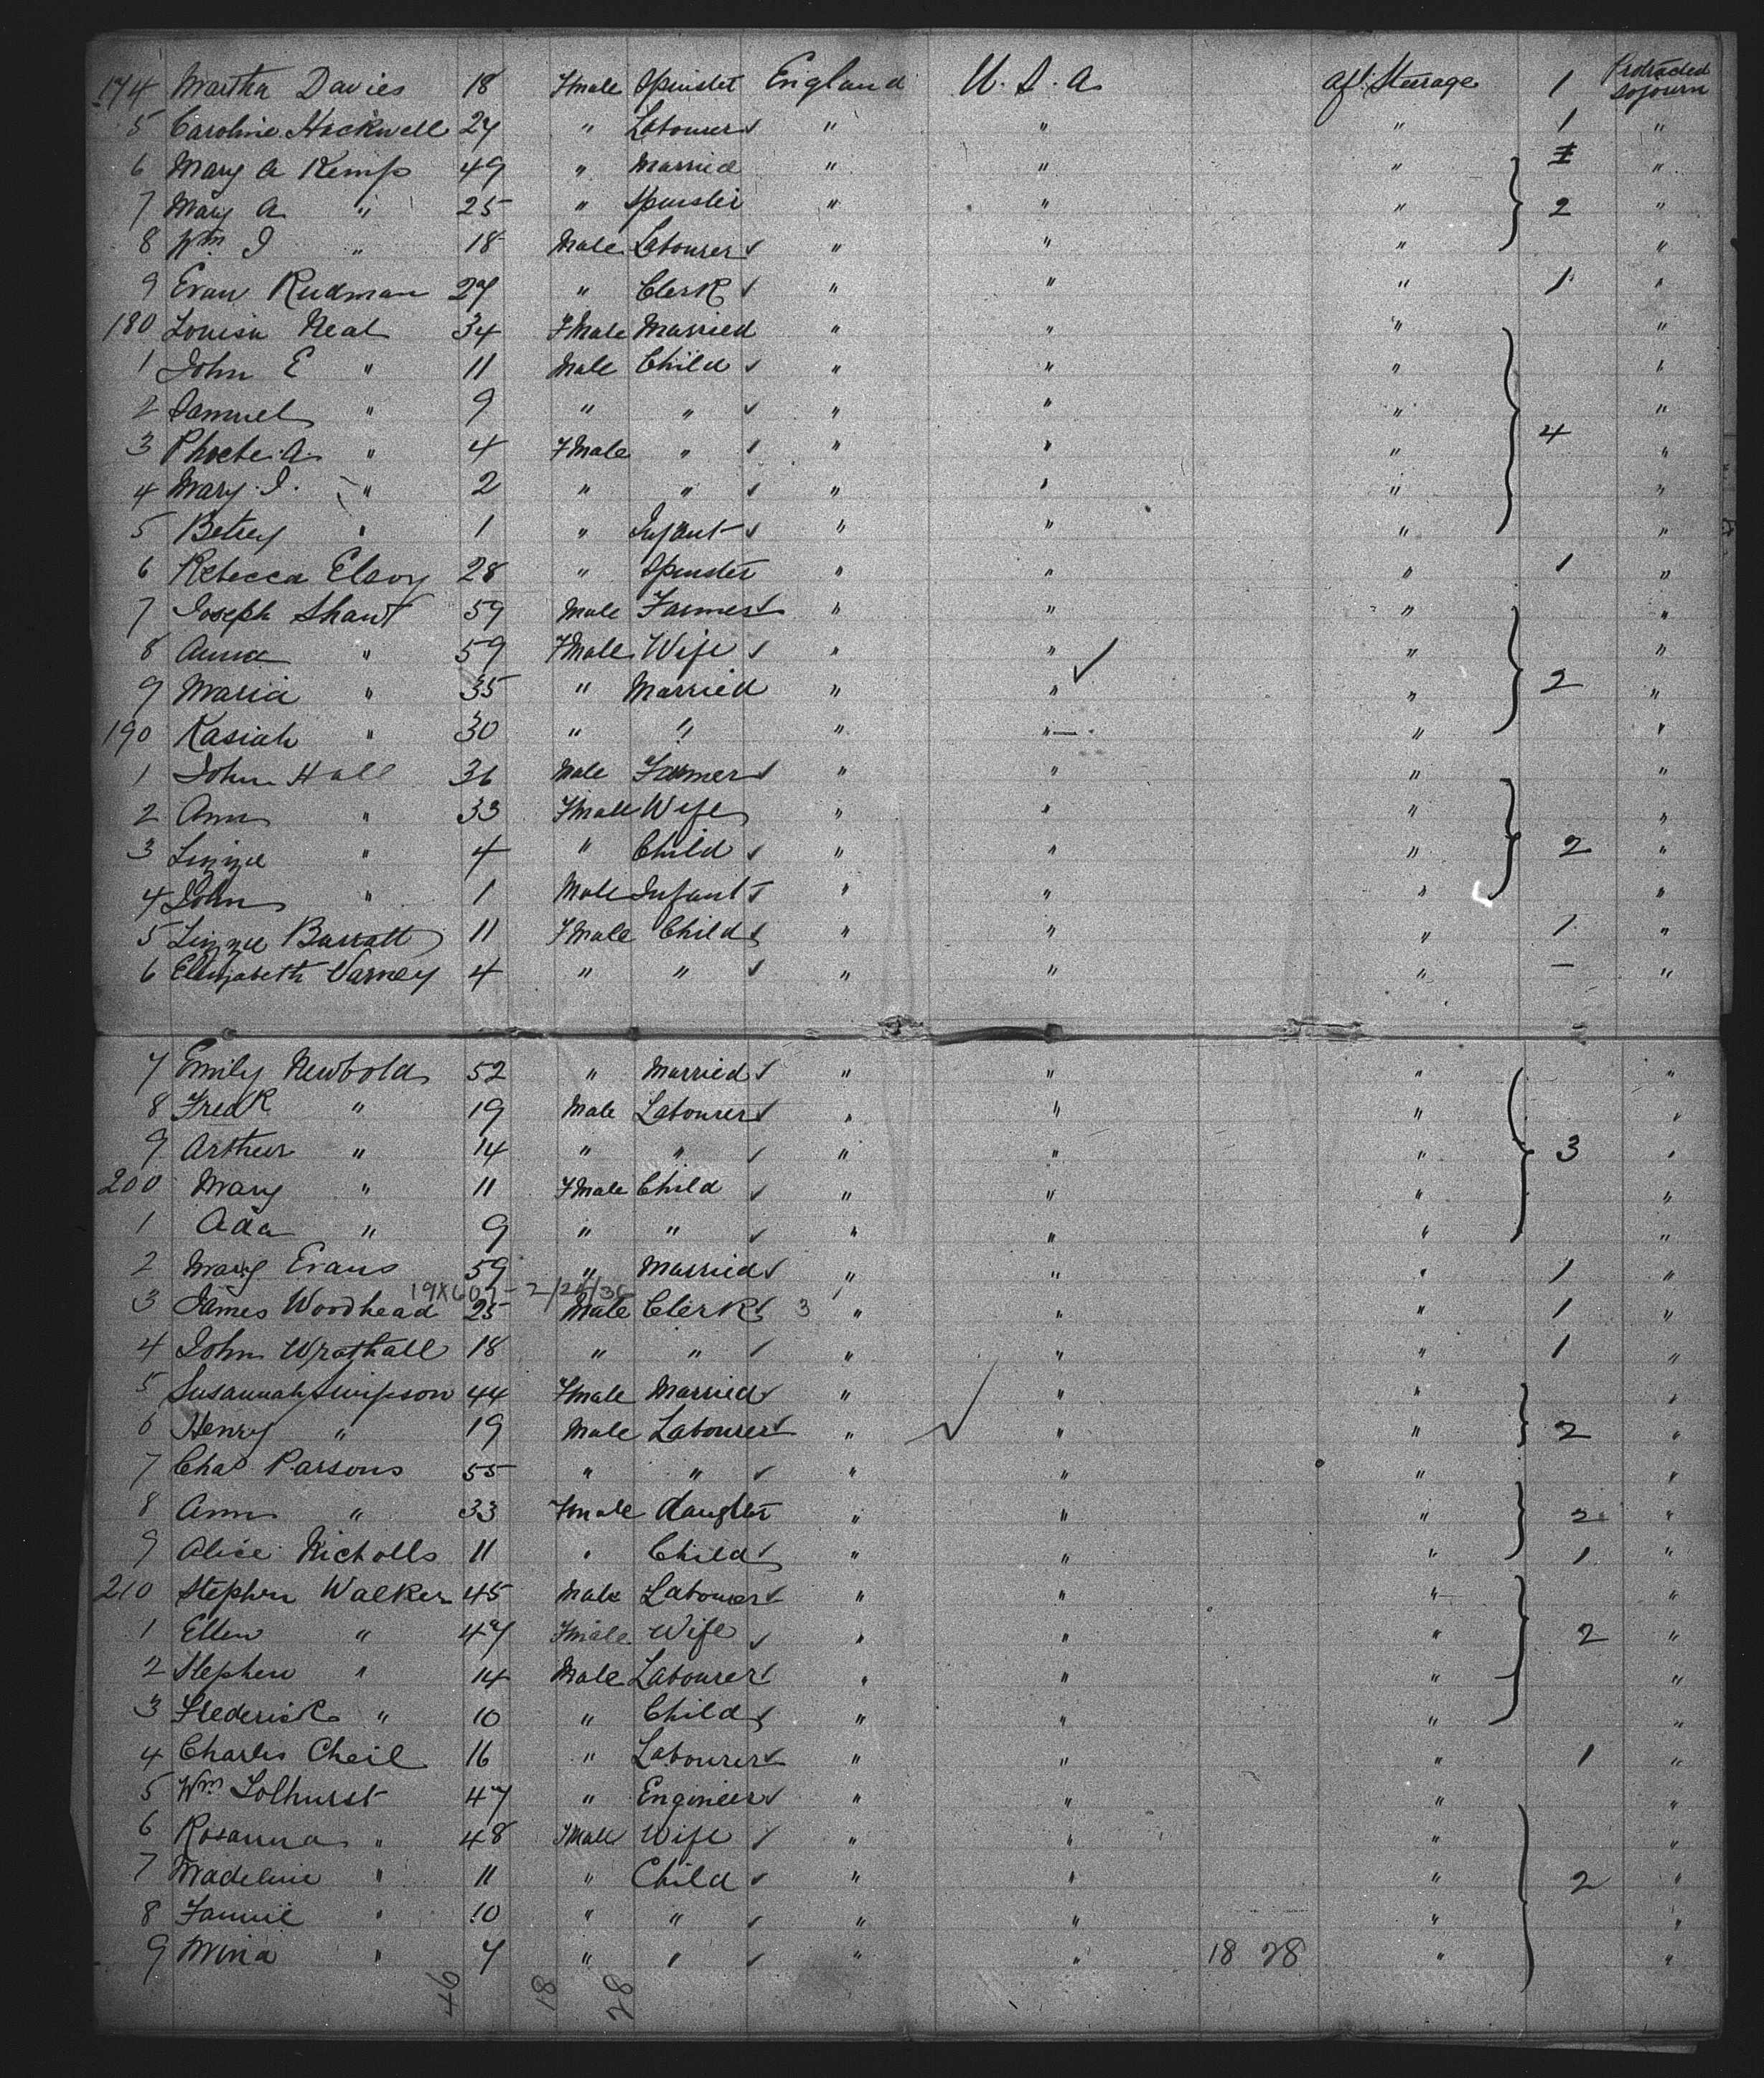 174 Martha Davies 18 Fmale Spinster England U.S.A. Aft Steerage 1 Protracted Sojourn
5 Caroline Hockwell 27 " Labourer " " " 1 "
6 Mary A Kemp 49 " Married " " " 1 "
7 Mary A " 25 " Spinster " " " 2 "
8 Wm J " 18 Male Labourer " " " "
9 Evan Rudman 27 " Clerk " " " 1 "
180 Louisa Neal 34 Fmale Married " " " "
1 John E " 11 Male Child " " " "
2 Samuel " 9 " " " " " "
3 Phoebe A. " 4 Fmale " " " " 4 "
4 Mary J. " 2 " " " " " "
5 Betsey " 1 " Infant " " " "
6 Rebecca 28 " Spinster " " " 1 "
7 Joseph Shant 59 Male Farmer " " " "
8 Anna " 59 Fmale Wife " " " "
9 Maria " 35 " Married " " " 2 "
190 Kasiah " 30 " " " " " "
1 John Hall 36 Male Farmer " " " "
2 Ann " 33 Fmale Wife " " " "
3 Lizzie " 4 " Child " " " 2 "
4 John " 1 Male Infant " " " "
5 Lizzie Barratt 11 Fmale Child " " " 1 "
6 Elizabeth Varney 4 " " " " " — "
7 Emily Newbold 52 " Married " " " "
8 Fredk " 19 Male Labourer " " " "
9 Arthur " 14 " " " " " 3 "
200 Mary " 11 Fmale Child " " " "
1 Ada " 9 " " " " " "
2 Mary Evans 59 " Married " " " 1 "
19X607- 2/24/36
3 James Woodhead 25 Male Clerk 3 " " " 1 "
4 John Wrathall 18 " " " " " 1 "
5 Susannah Simpson 44 Fmale Married " " " "
6 Henry " 19 Male Labourer " " " 2 "
7 Chas Parsons 55 " " " " " "
8 Ann " 33 Fmale daughter " " " 2 "
9 Alice Nicholls 11 " Child " " " 1 "
210 Stephen Walker 45 Male Labourer " " " "
1 Ellen " 47 Fmale Wife " " " 2 "
2 Stephen " 14 Male Labourer " " " "
3 Frederick " 10 " Child " " " "
4 Charles Cheil 16 " Labourer " " " 1 "
5 Wm Lolhurst 47 " Engineer " " " "
6 Rosanna " 48 Fmale Wife " " " "
7 Madeline " 11 " Child " " " 2 "
8 Fannie " 10 " " " " " "
9 Mina " 7 " " " " 18 28 " "
46 18 28